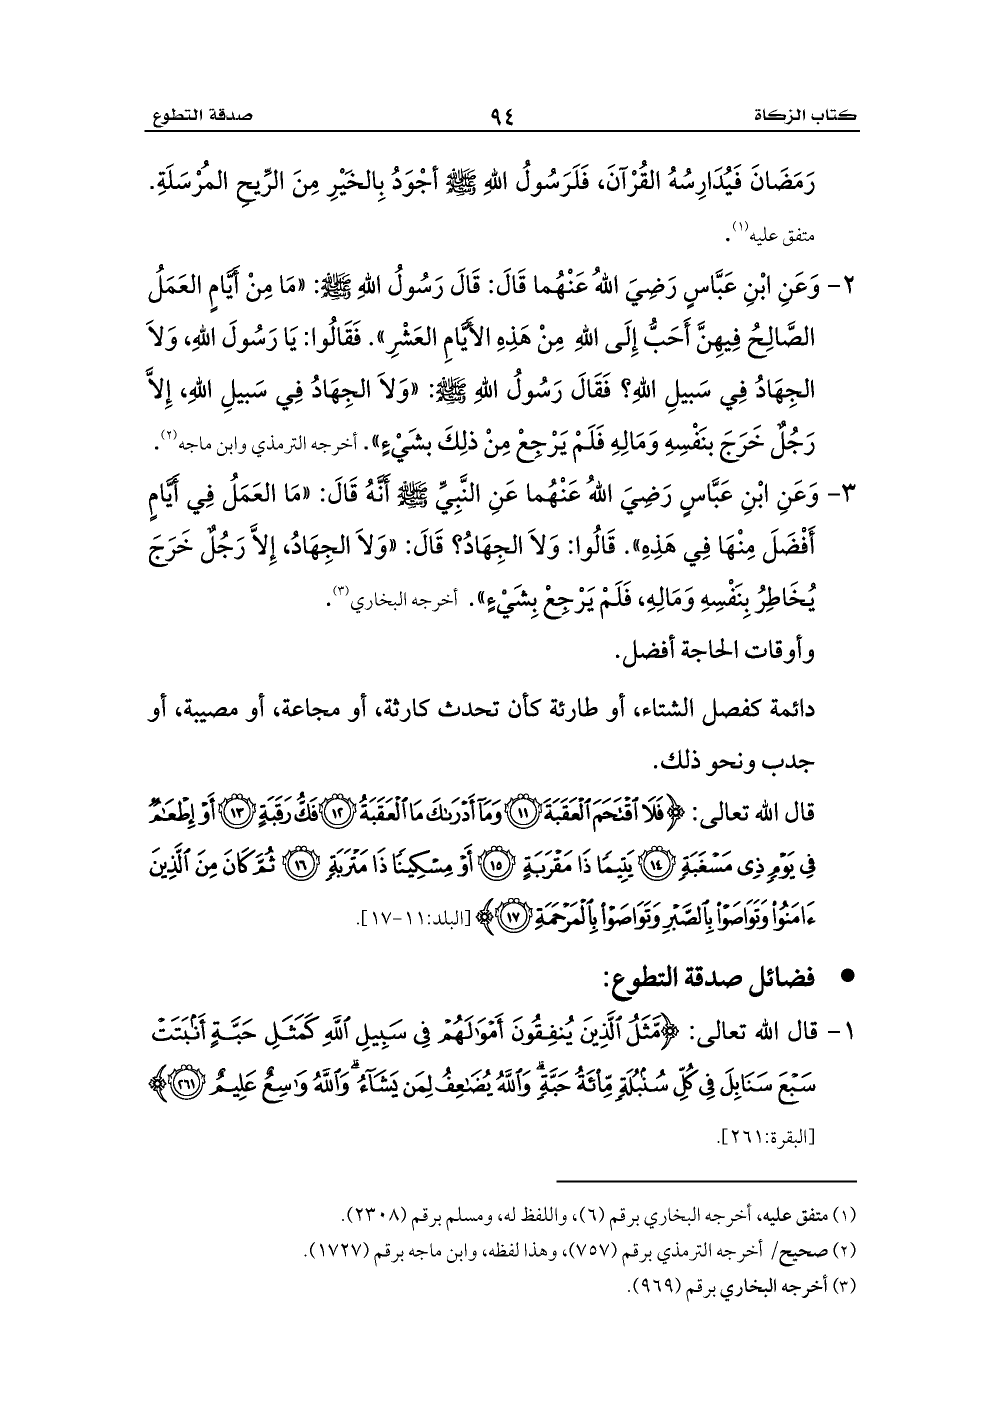 كتاب الزكاة ٩٤ صدقة التطوع
رَمَضَانَ فَيُدَارِسُهُ القُرْآنَ، فَلَرَسُولُ اللهِ ﷺ أجْوَدُ بِالخَيْرِ مِنَ الرِّيحِ المُرْسَلَةِ.
متفق عليه(١).
٢- وَعَنِ ابْنِ عَبَّاسٍ رَضِيَ اللهُ عَنْهُما قَالَ: قَالَ رَسُولُ اللهِ ﷺ: «مَا مِنْ أَيَّامٍ العَمَلُ
الصَّالِحُ فِيهِنَّ أَحَبُّ إِلَى اللهِ مِنْ هَذِهِ الأيَّامِ العَشْرِ». فَقَالُوا: يَا رَسُولَ اللهِ، وَلاَ
الجِهَادُ فِي سَبِيلِ اللهِ؟ فَقَالَ رَسُولُ اللهِ ﷺ: «وَلاَ الجِهَادُ فِي سَبيلِ اللهِ، إِلاَّ
رَجُلٌ خَرَجَ بنَفْسِهِ وَمَالِهِ فَلَمْ يَرْجِعْ مِنْ ذلِكَ بشَيْءٍ». أخرجه الترمذي وابن ماجه(٢).
٣- وَعَنِ ابْنِ عَبَّاسٍ رَضِيَ اللهُ عَنْهُما عَنِ النَّبِيِّ ﷺ أَنَّهُ قَالَ: «مَا العَمَلُ فِي أَيَّامٍ
أَفْضَلَ مِنْهَا فِي هَذِهِ». قَالُوا: وَلاَ الجِهَادُ؟ قَالَ: «وَلاَ الجِهَادُ، إِلاَّ رَجُلٌ خَرَجَ
يُخَاطِرُ بِنَفْسِهِ وَمَالِهِ، فَلَمْ يَرْجِعْ بِشَيْءٍ». أخرجه البخاري(٣).
وأوقات الحاجة أفضل.
دائمة كفصل الشتاء، أو طارئة كأن تحدث كارثة، أو مجاعة، أو مصيبة، أو
جدب ونحو ذلك.
قال الله تعالى: ﴿فَلَا ٱقْتَحَمَ ٱلْعَقَبَةَ ﴿١١﴾ وَمَآ أَدْرَىٰكَ مَا ٱلْعَقَبَةُ ﴿١٢﴾ فَكُّ رَقَبَةٍ ﴿١٣﴾ أَوْ إِطْعَٰمٌ
فِى يَوْمٍ ذِى مَسْغَبَةٍ ﴿١٤﴾ يَتِيمًا ذَا مَقْرَبَةٍ ﴿١٥﴾ أَوْ مِسْكِينًا ذَا مَتْرَبَةٍ ﴿١٦﴾ ثُمَّ كَانَ مِنَ ٱلَّذِينَ
ءَامَنُوا۟ وَتَوَاصَوْا۟ بِٱلصَّبْرِ وَتَوَاصَوْا۟ بِٱلْمَرْحَمَةِ ﴿١٧﴾﴾ [البلد:١١-١٧].
● فضائل صدقة التطوع:
١- قال الله تعالى: ﴿مَّثَلُ ٱلَّذِينَ يُنفِقُونَ أَمْوَٰلَهُمْ فِى سَبِيلِ ٱللَّهِ كَمَثَلِ حَبَّةٍ أَنۢبَتَتْ
سَبْعَ سَنَابِلَ فِى كُلِّ سُنۢبُلَةٍ مِّا۟ئَةُ حَبَّةٍ ۗ وَٱللَّهُ يُضَٰعِفُ لِمَن يَشَآءُ ۗ وَٱللَّهُ وَٰسِعٌ عَلِيمٌ ﴿٢٦١﴾﴾
[البقرة:٢٦١].
(١) متفق عليه، أخرجه البخاري برقم (٦)، واللفظ له، ومسلم برقم (٢٣٠٨).
(٢) صحيح/ أخرجه الترمذي برقم (٧٥٧)، وهذا لفظه، وابن ماجه برقم (١٧٢٧).
(٣) أخرجه البخاري برقم (٩٦٩).